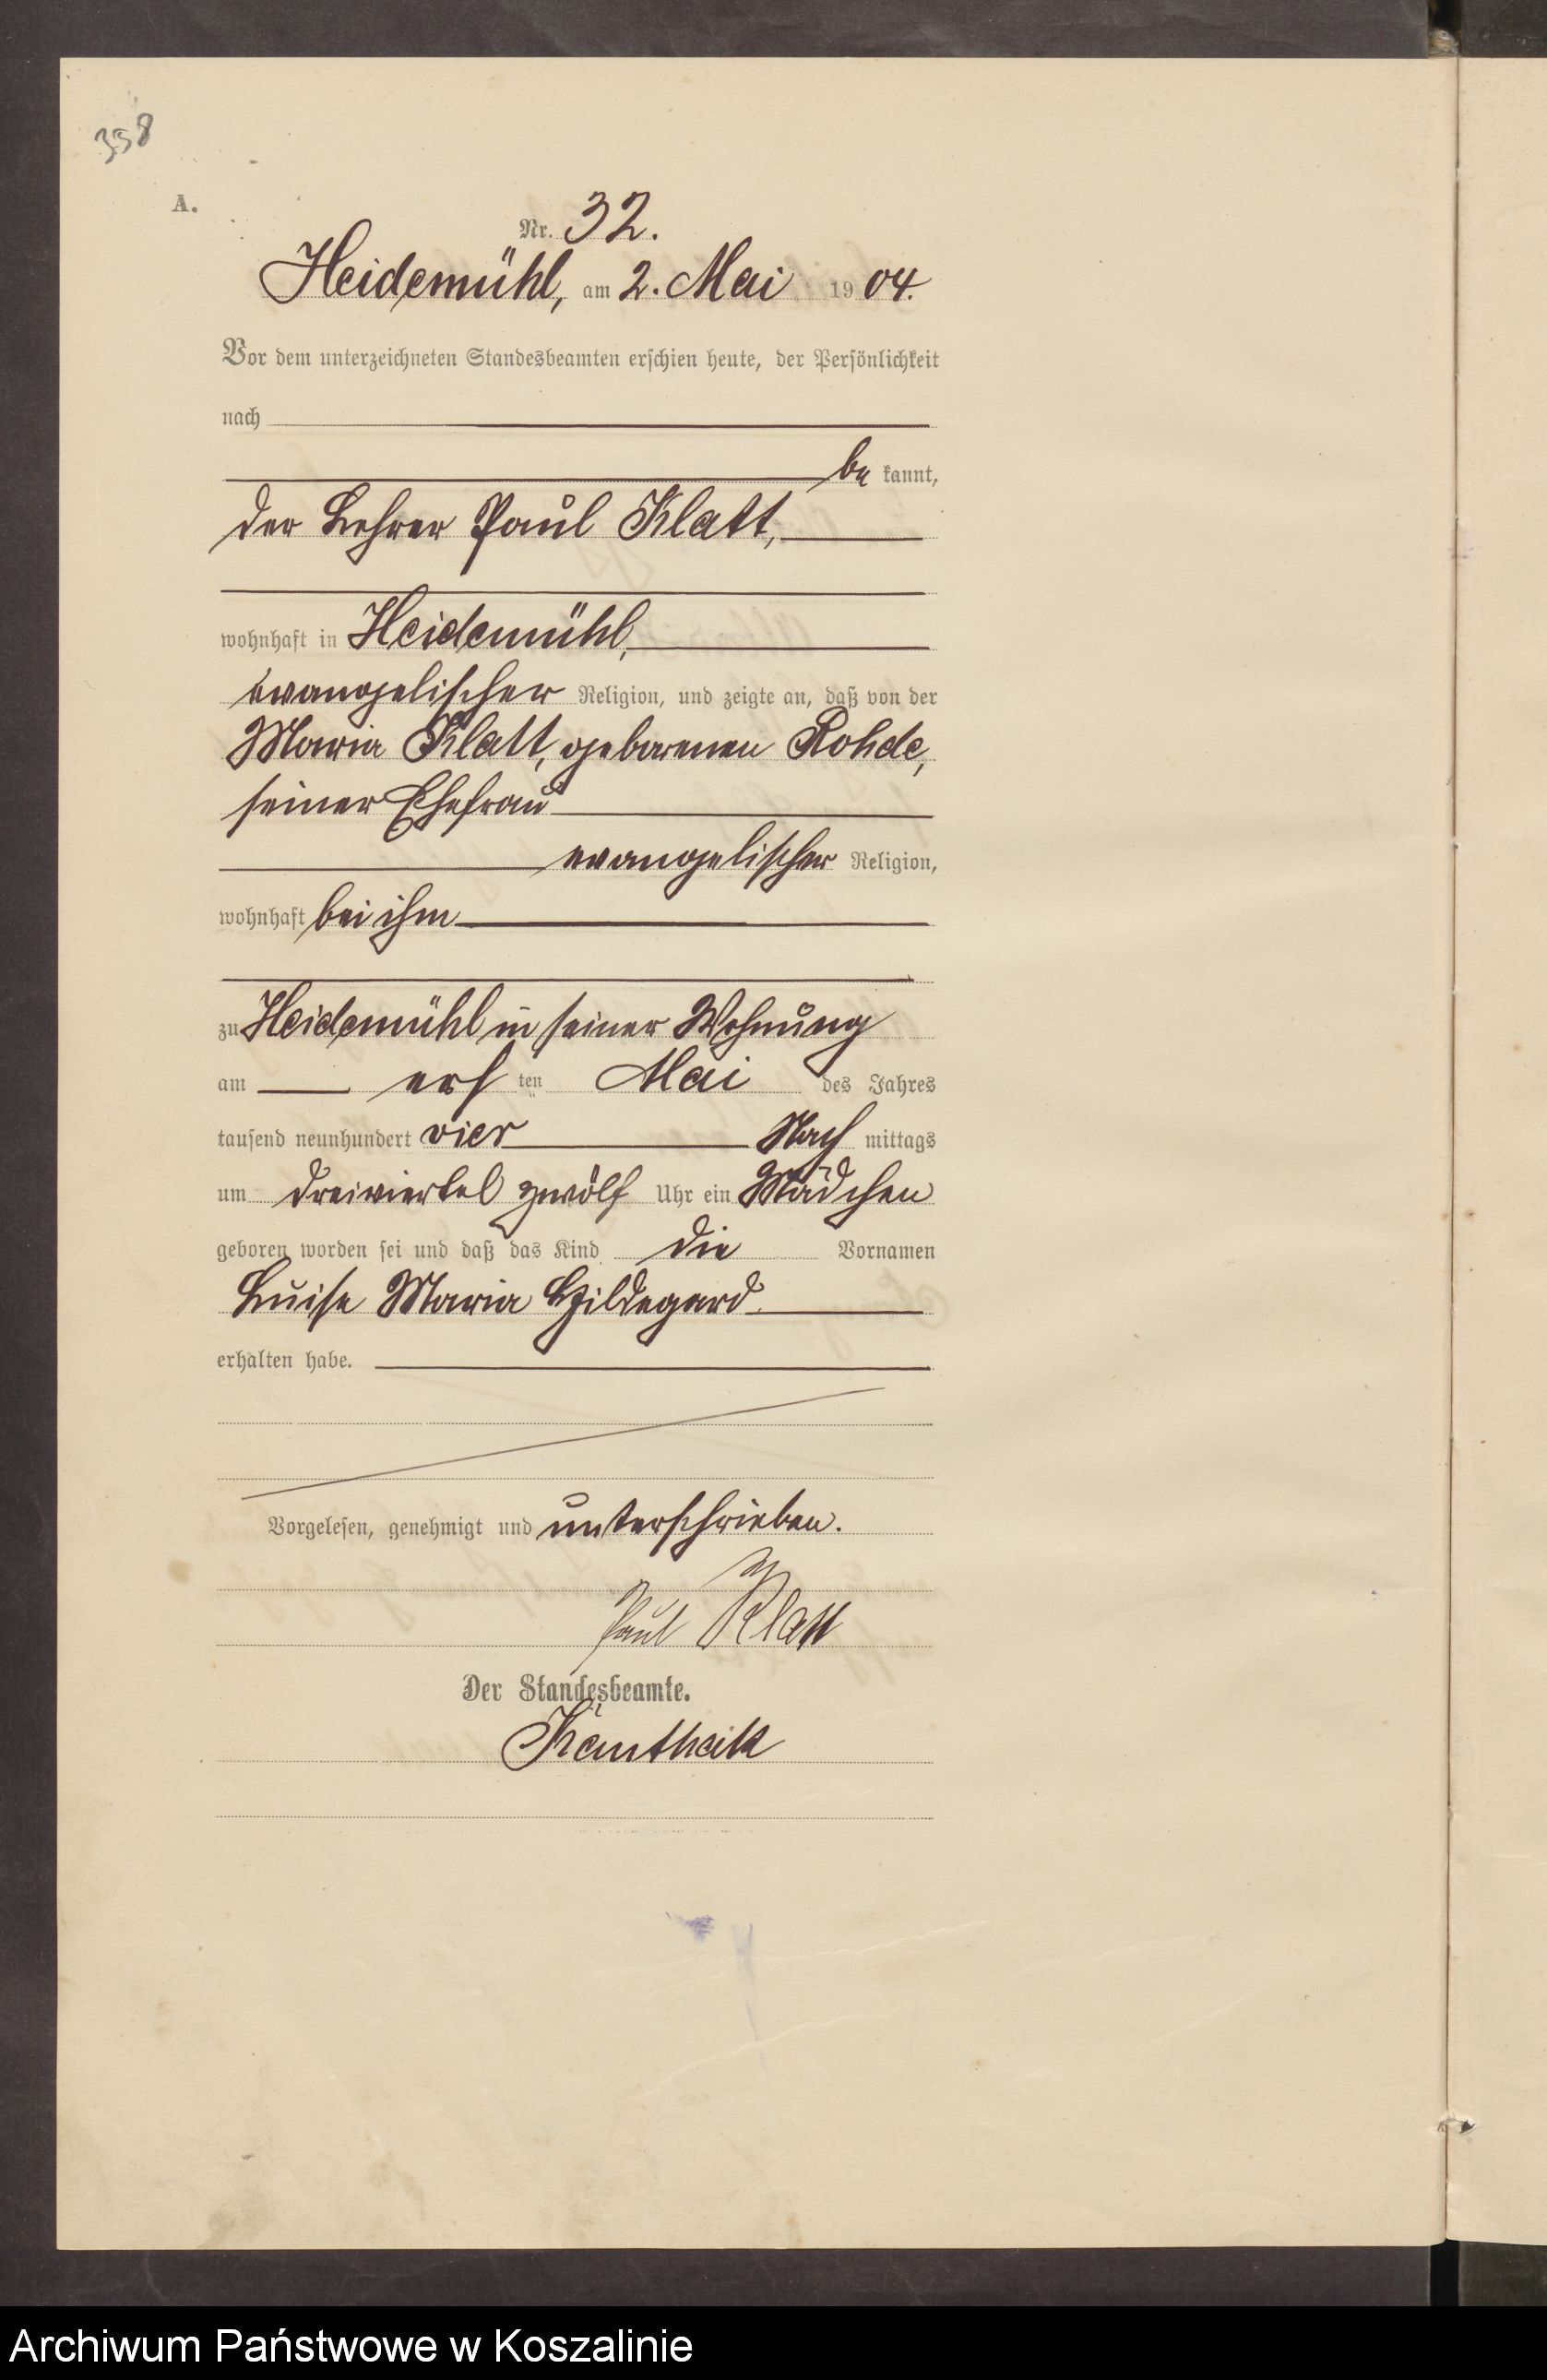 358
A.
Nr. 32.
Heidemühl, am 2. Mai 1904.
Vor dem unterzeichneten Standesbeamten erschien heute, der Persönlichkeit
nach
be kannt,
der Lehrer Paul Klatt,
wohnhaft in Heidemühl,
evangelischer Religion, und zeigte an, daß von der
Maria Klatt, geborenen Rohde,
seiner Ehefrau
evangelischer Religion,
wohnhaft bei ihm
zu Heidemühl in seiner Wohnung
am ersten Mai des Jahres
tausend neunhundert vier Nach mittags
um dreiviertel zwölf Uhr ein Mädchen
geboren worden sei und daß das Kind die Vornamen
Luise Maria Hildegard
erhalten habe.
Vorgelesen, genehmigt und unterschrieben.
Paul Klatt
Der Standesbeamte.
Archiwum Państwowe w Koszalinie